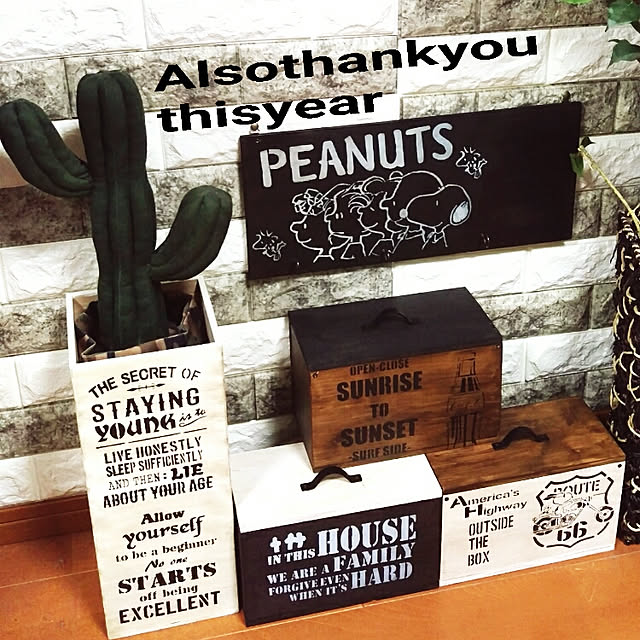 Alsothankyou
thisyear
PEANUTS
THE SECRET OF
STAYING
YOUNG is to
LIVE HONESTLY
SLEEP SUFFICIENTLY
AND THEN: LIE
ABOUT YOUR AGE
Allow
yourself
to be a beginner
No one
STARTS
off being
EXCELLENT
OPEN-CLOSE
SUNRISE
TO
SUNSET
-SURF SIDE-
IN THIS HOUSE
WE ARE A FAMILY
FORGIVE EVEN
WHEN IT'S HARD
America's
Highway
OUTSIDE
THE
BOX
ROUTE
66